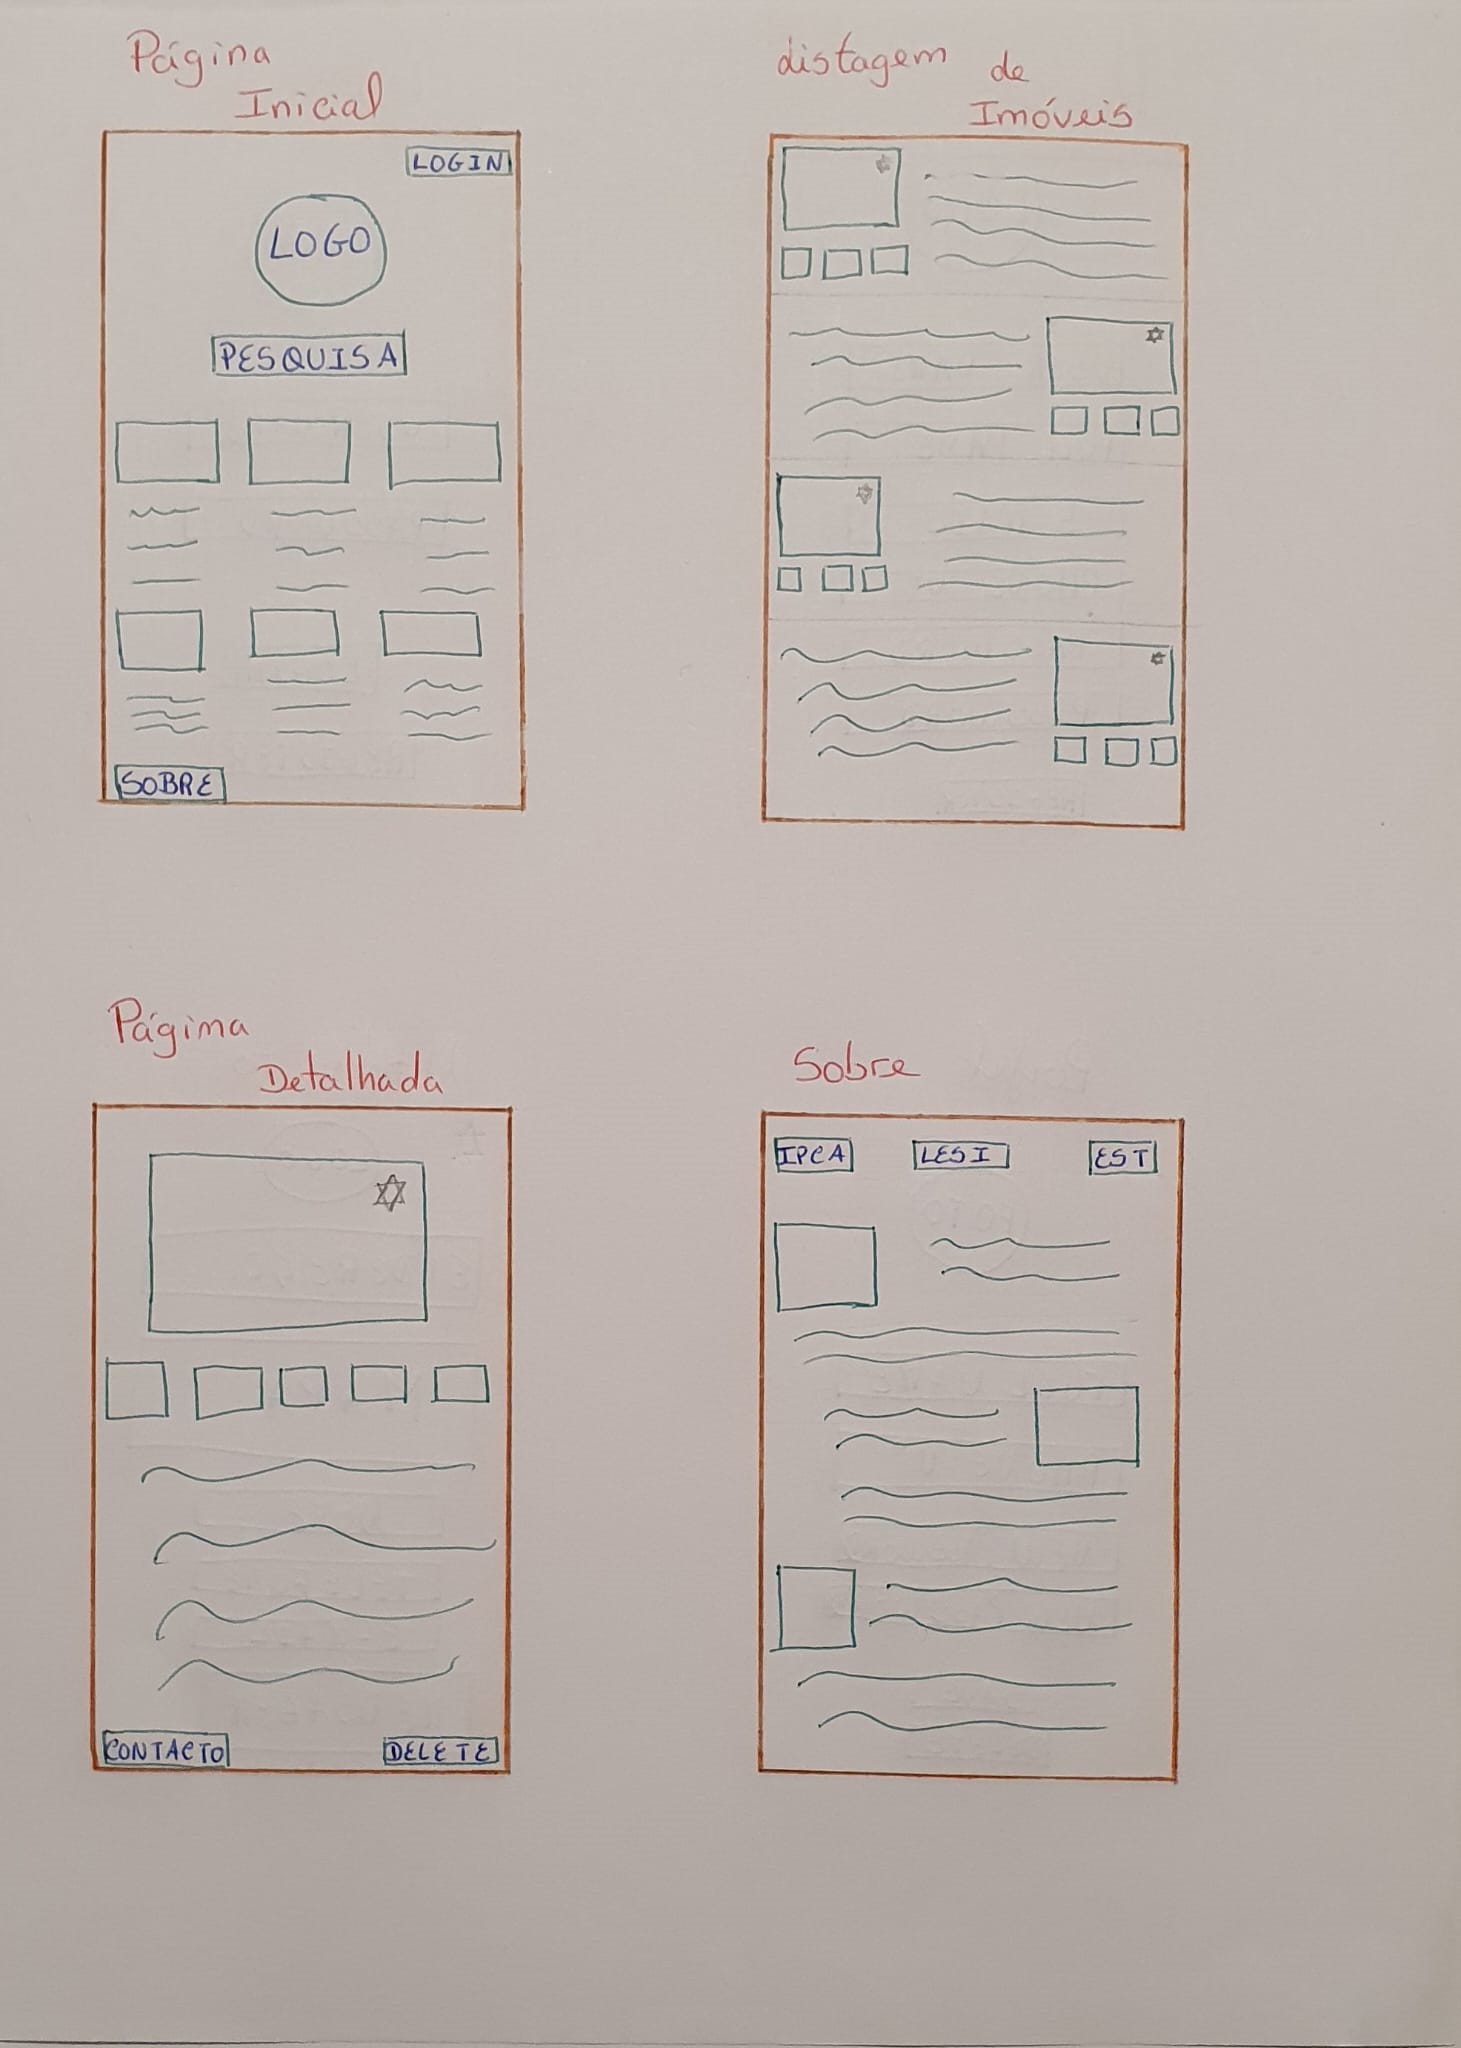 Página
Inicial
LOGIN
LOGO
PESQUISA
SOBRE
Listagem de
Imóveis
Página
Detalhada
CONTACTO
DELETE
Sobre
IPCA
LESI
EST